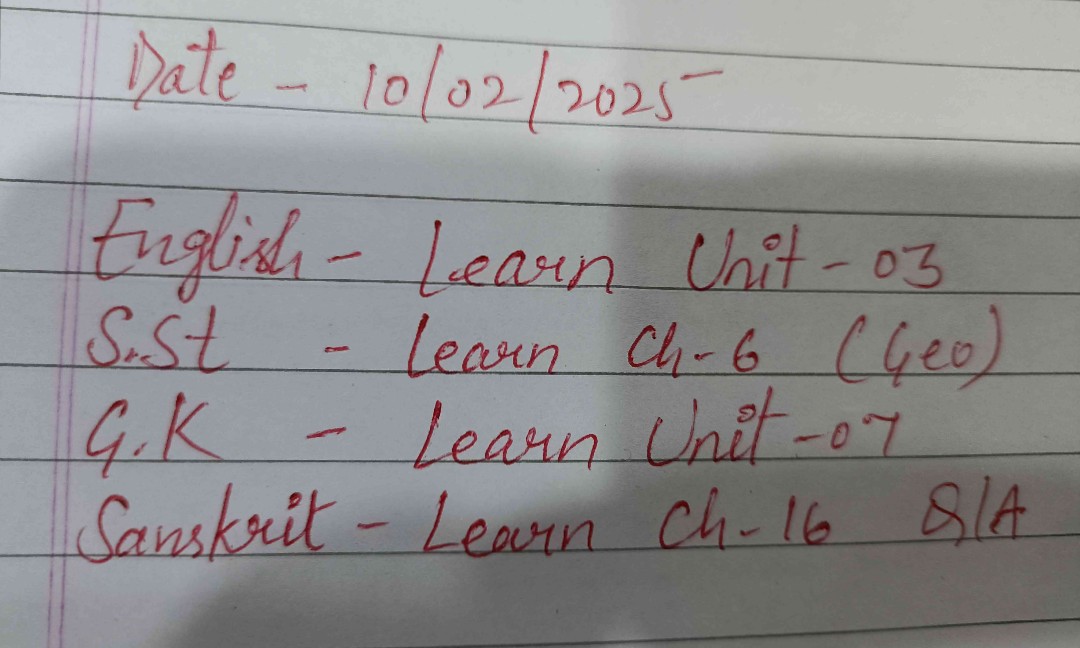 Date - 10/02/2025
English - Learn Unit - 03
S.St - Learn Ch-6 (Geo)
G.K - Learn Unit -07
Sanskrit - Learn Ch-16 Q/A